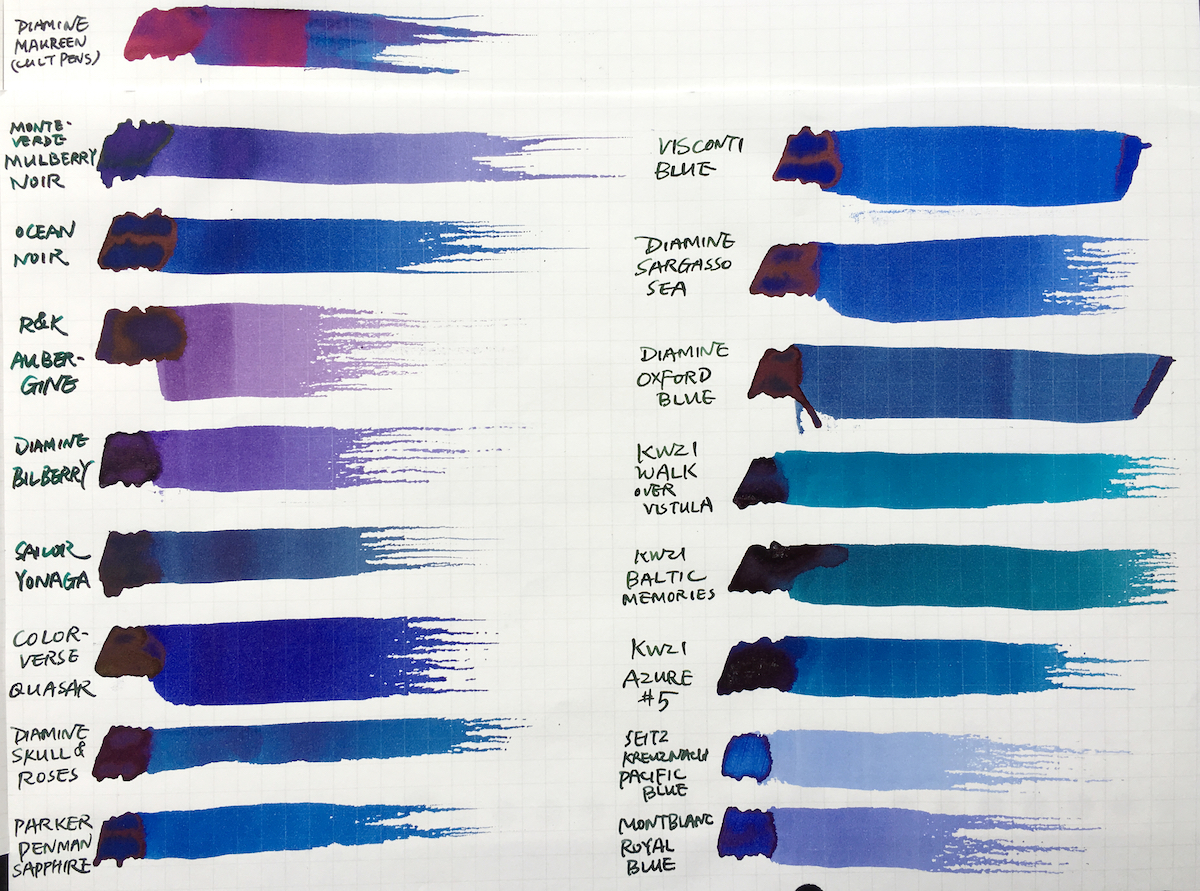 DIAMINE
MAUREEN
(CULT PENS)
MONTE-
VERDE
MULBERRY
NOIR
OCEAN
NOIR
R&K
AUBER-
GINE
DIAMINE
BILBERRY
SAILOR
YONAGA
COLOR-
VERSE
QUASAR
DIAMINE
SKULL &
ROSES
PARKER
PENMAN
SAPPHIRE
VISCONTI
BLUE
DIAMINE
SARGASSO
SEA
DIAMINE
OXFORD
BLUE
KWZI
WALK
OVER
VISTULA
KWZI
BALTIC
MEMORIES
KWZI
AZURE
#5
SEITZ
KREUZNACH
PACIFIC
BLUE
MONTBLANC
ROYAL
BLUE